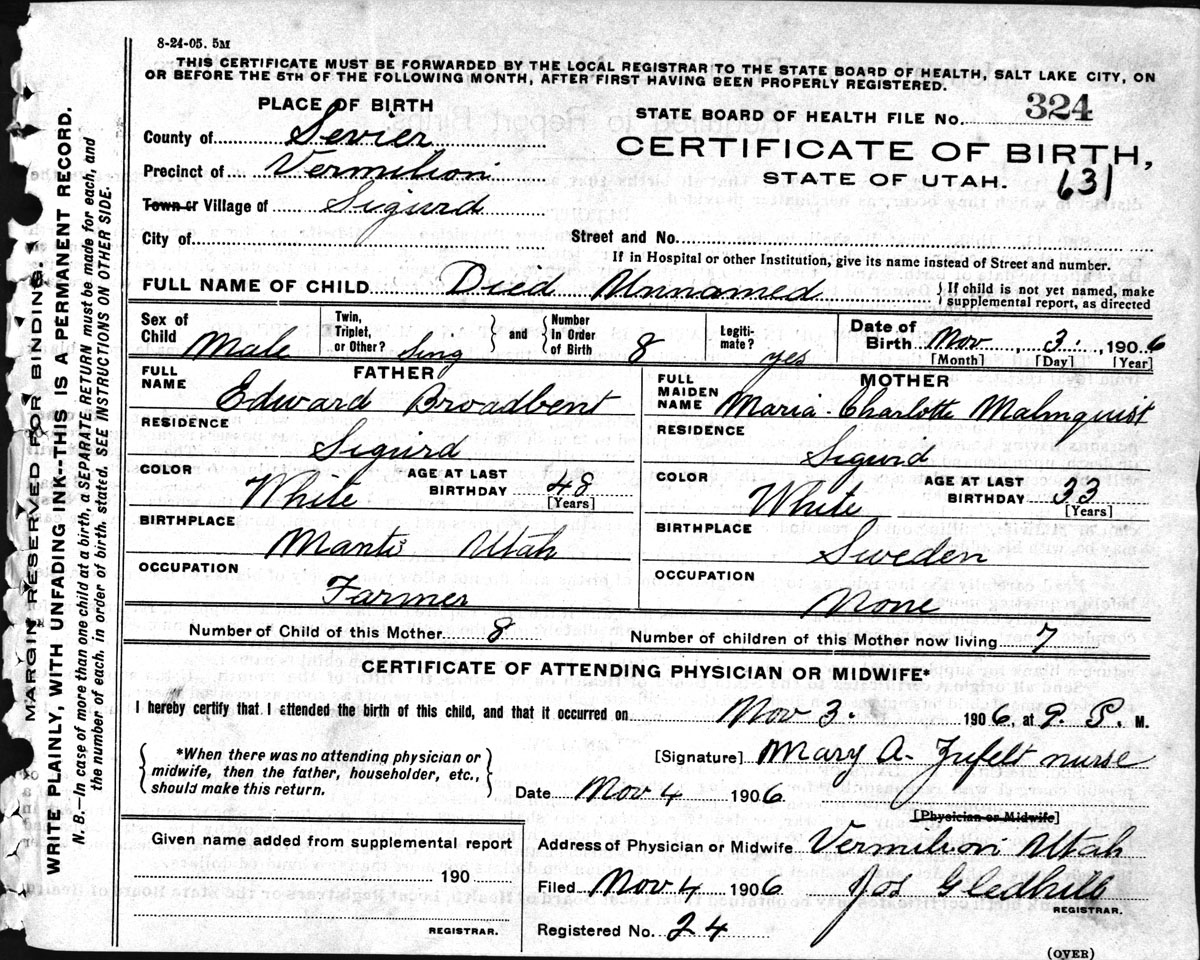 8-24-05. 5M
THIS CERTIFICATE MUST BE FORWARDED BY THE LOCAL REGISTRAR TO THE STATE BOARD OF HEALTH, SALT LAKE CITY, ON
OR BEFORE THE 5TH OF THE FOLLOWING MONTH, AFTER FIRST HAVING BEEN PROPERLY REGISTERED.
PLACE OF BIRTH
County of Sevier
Precinct of Vermilion
Town or Village of Sigurd
City of
STATE BOARD OF HEALTH FILE No. 324
CERTIFICATE OF BIRTH,
STATE OF UTAH. 631
Street and No.
If in Hospital or other Institution, give its name instead of Street and number.
FULL NAME OF CHILD Died Unnamed } If child is not yet named, make
supplemental report, as directed
Sex of Child Male
Twin, Triplet, or Other? Sing } and { Number In Order of Birth 8
Legitimate? yes
Date of Birth Nov, 3., 1906
[Month] [Day] [Year]
FATHER
FULL NAME Edward Broadbent
RESIDENCE Sigurd
COLOR White AGE AT LAST BIRTHDAY 48 [Years]
BIRTHPLACE Manti Utah
OCCUPATION Farmer
MOTHER
FULL MAIDEN NAME Maria Charlotte Malmquist
RESIDENCE Sigurd
COLOR White AGE AT LAST BIRTHDAY 33 [Years]
BIRTHPLACE Sweden
OCCUPATION None
Number of Child of this Mother 8 Number of children of this Mother now living 7
CERTIFICATE OF ATTENDING PHYSICIAN OR MIDWIFE*
I hereby certify that I attended the birth of this child, and that it occurred on Nov 3. 1906, at 9 P. M.
{ *When there was no attending physician or
midwife, then the father, householder, etc.,
should make this return. }
[Signature] Mary A. Zufelt nurse
Date Nov 4 1906.
[Physician or Midwife]
Given name added from supplemental report
190
REGISTRAR.
Address of Physician or Midwife Vermilion Utah
Filed Nov 4 1906 Jos Gledhill
REGISTRAR.
Registered No. 24
(OVER)
MARGIN RESERVED FOR BINDING.
WRITE PLAINLY, WITH UNFADING INK--THIS IS A PERMANENT RECORD.
N. B.—In case of more than one child at a birth, a SEPARATE RETURN must be made for each, and
the number of each, in order of birth, stated. SEE INSTRUCTIONS ON OTHER SIDE.